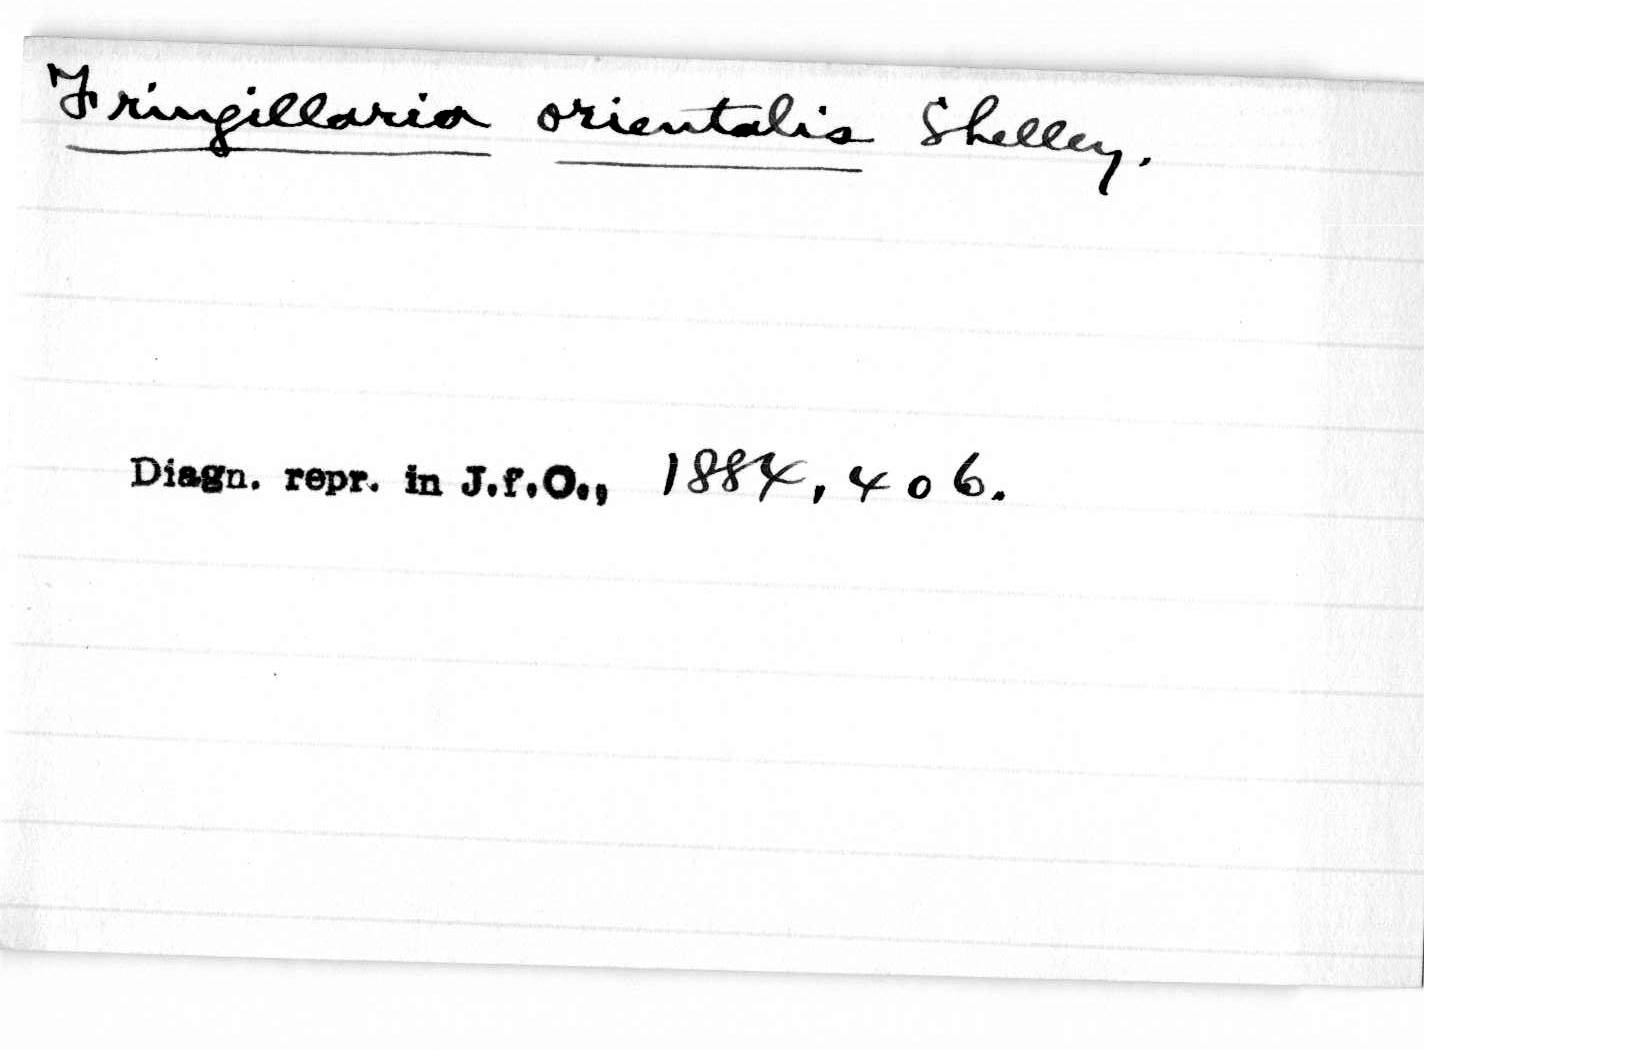 Fringillaria orientalis Shelley.
Diagn. repr. in J.f.O., 1884, 406.